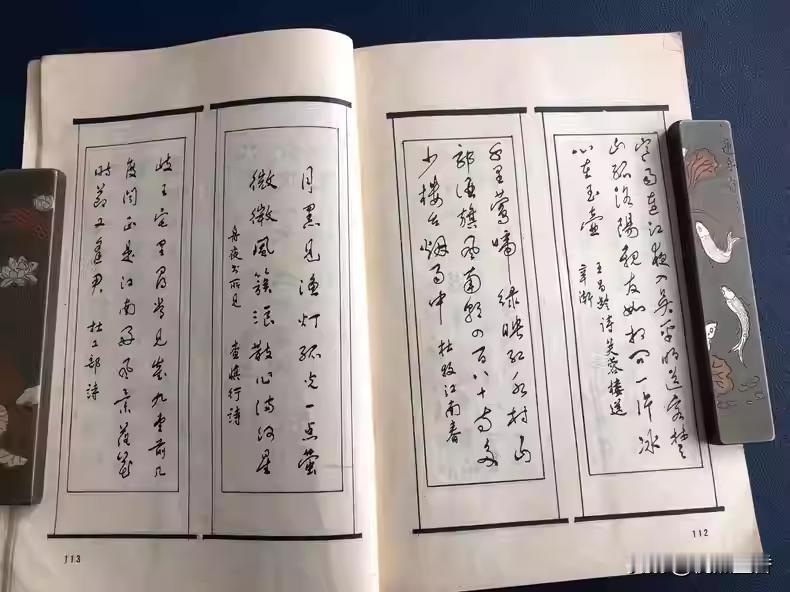 寒雨連江夜入吴平明送客楚
山孤洛陽親友如相问一片冰
心在玉壶
王昌龄诗芙蓉楼送
辛渐
千里莺啼绿映红水村山
郭酒旗风南朝四百八十寺多
少楼台烟雨中
杜牧江南春
112
月黑见渔灯孤光一点萤
微微风簇浪散作满河星
舟夜书所见 查慎行诗
岐王宅里寻常见崔九堂前几
度闻正是江南好风景落花
时节又逢君
杜工部诗
113